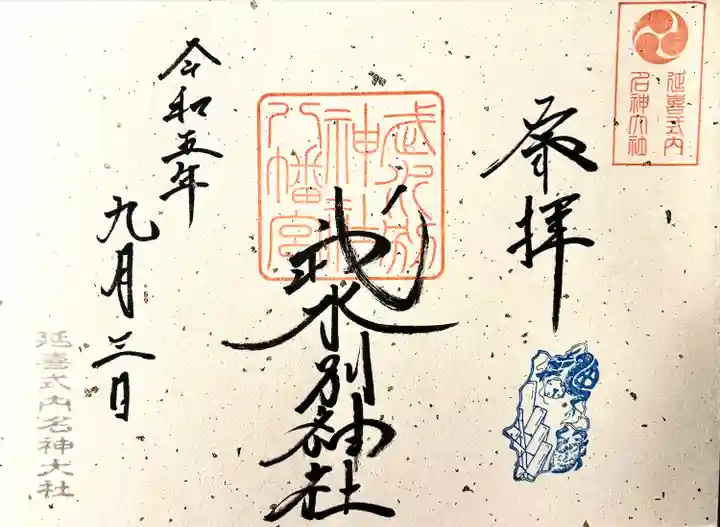 延喜式内
名神大社
奉拝
武水別
神社
八幡宮
武水別神社
令和五年
九月三日
延喜式内名神大社